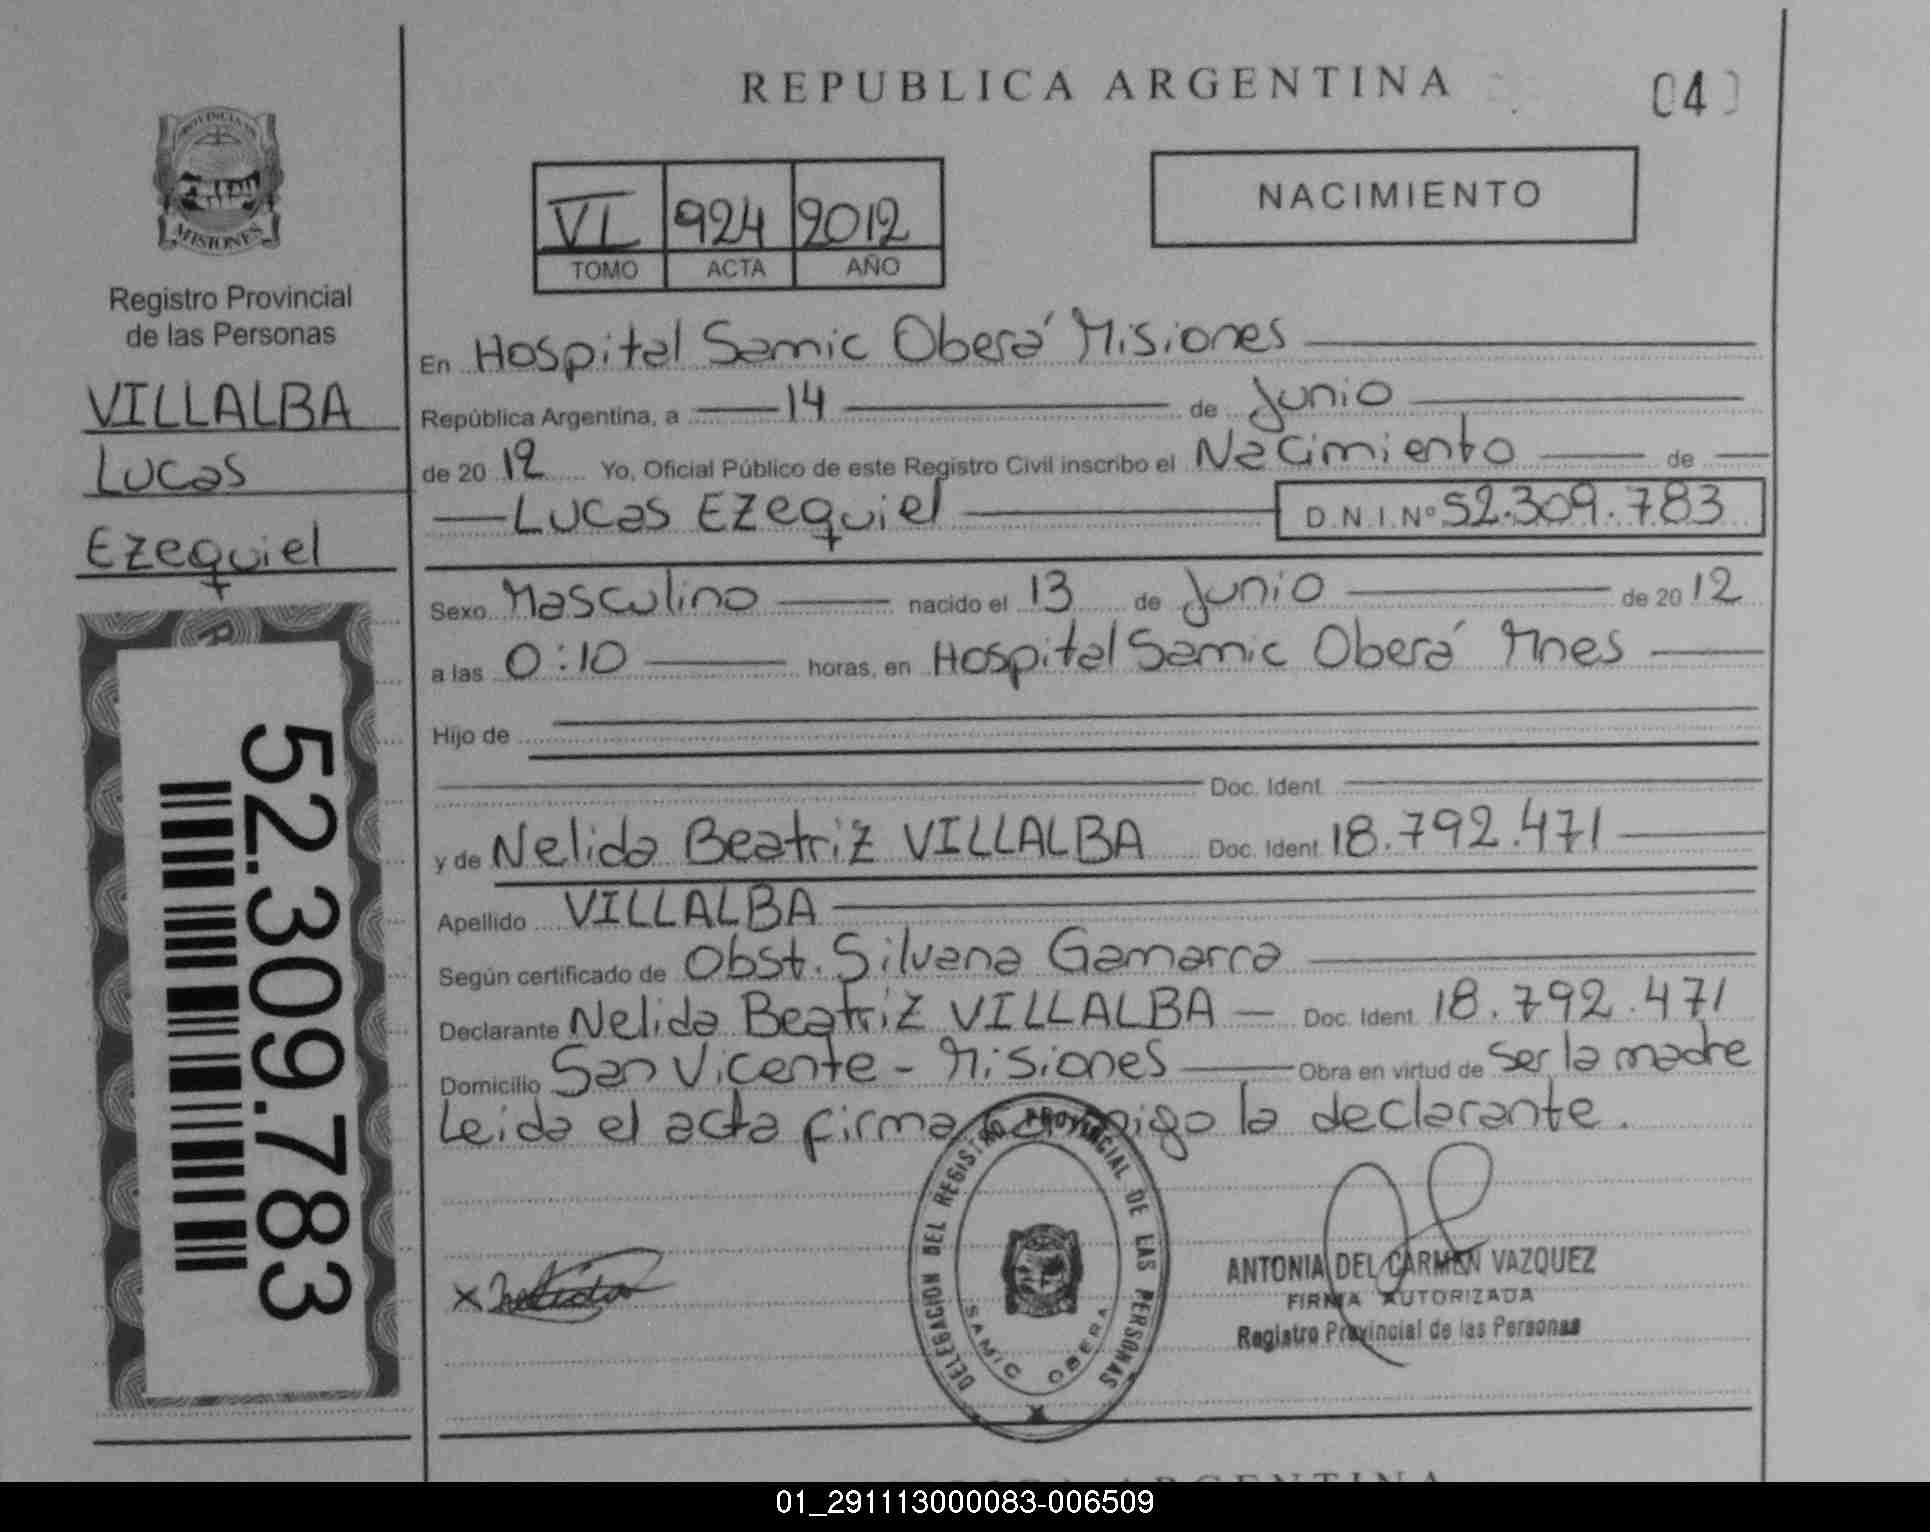 REPUBLICA ARGENTINA
04
PROVINCIA DE MISIONES
Registro Provincial
de las Personas
VILLALBA
Lucas
Ezequiel
52.309.783
VI 924 2012
TOMO ACTA AÑO
NACIMIENTO
En Hospital Samic Oberá Misiones
República Argentina, a 14 de Junio
de 2012 Yo, Oficial Público de este Registro Civil inscribo el Nacimiento de
Lucas Ezequiel D.N.I.Nº 52.309.783
Sexo Masculino nacido el 13 de Junio de 2012
a las 0:10 horas, en Hospital Samic Oberá Mnes
Hijo de
Doc. Ident.
y de Nelida Beatriz VILLALBA Doc. Ident. 18.792.471
Apellido VILLALBA
Según certificado de Obst. Silvana Gamarra
Declarante Nelida Beatriz VILLALBA Doc. Ident. 18.792.471
Domicilio San Vicente - Misiones Obra en virtud de ser la madre
Leida el acta firma conmigo la declarante.
DELEGACION DEL REGISTRO PROVINCIAL DE LAS PERSONAS
SAMIC OBERA
ANTONIA DEL CARMEN VAZQUEZ
FIRMA AUTORIZADA
Registro Provincial de las Personas
ARGENTINA
01_291113000083-006509